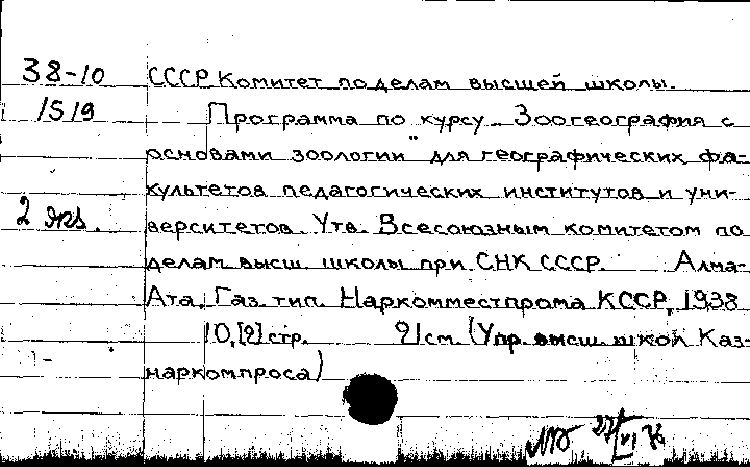 38-10 СССР Комитет по делам высшей школы.
1519 Программа по курсу „Зоогеография с
основами зоологии" для географических фа-
культетов педагогических институтов и уни-
2 экз. верситетов. Утв. Всесоюзным комитетом по
делам высш. школы при СНК СССР. Алма-
Ата, Газ. тип. Наркомместпрома КССР, 1938
10,[2] стр. 21 см. (Упр. высш. школ Каз-
наркомпроса)
27/VI 76